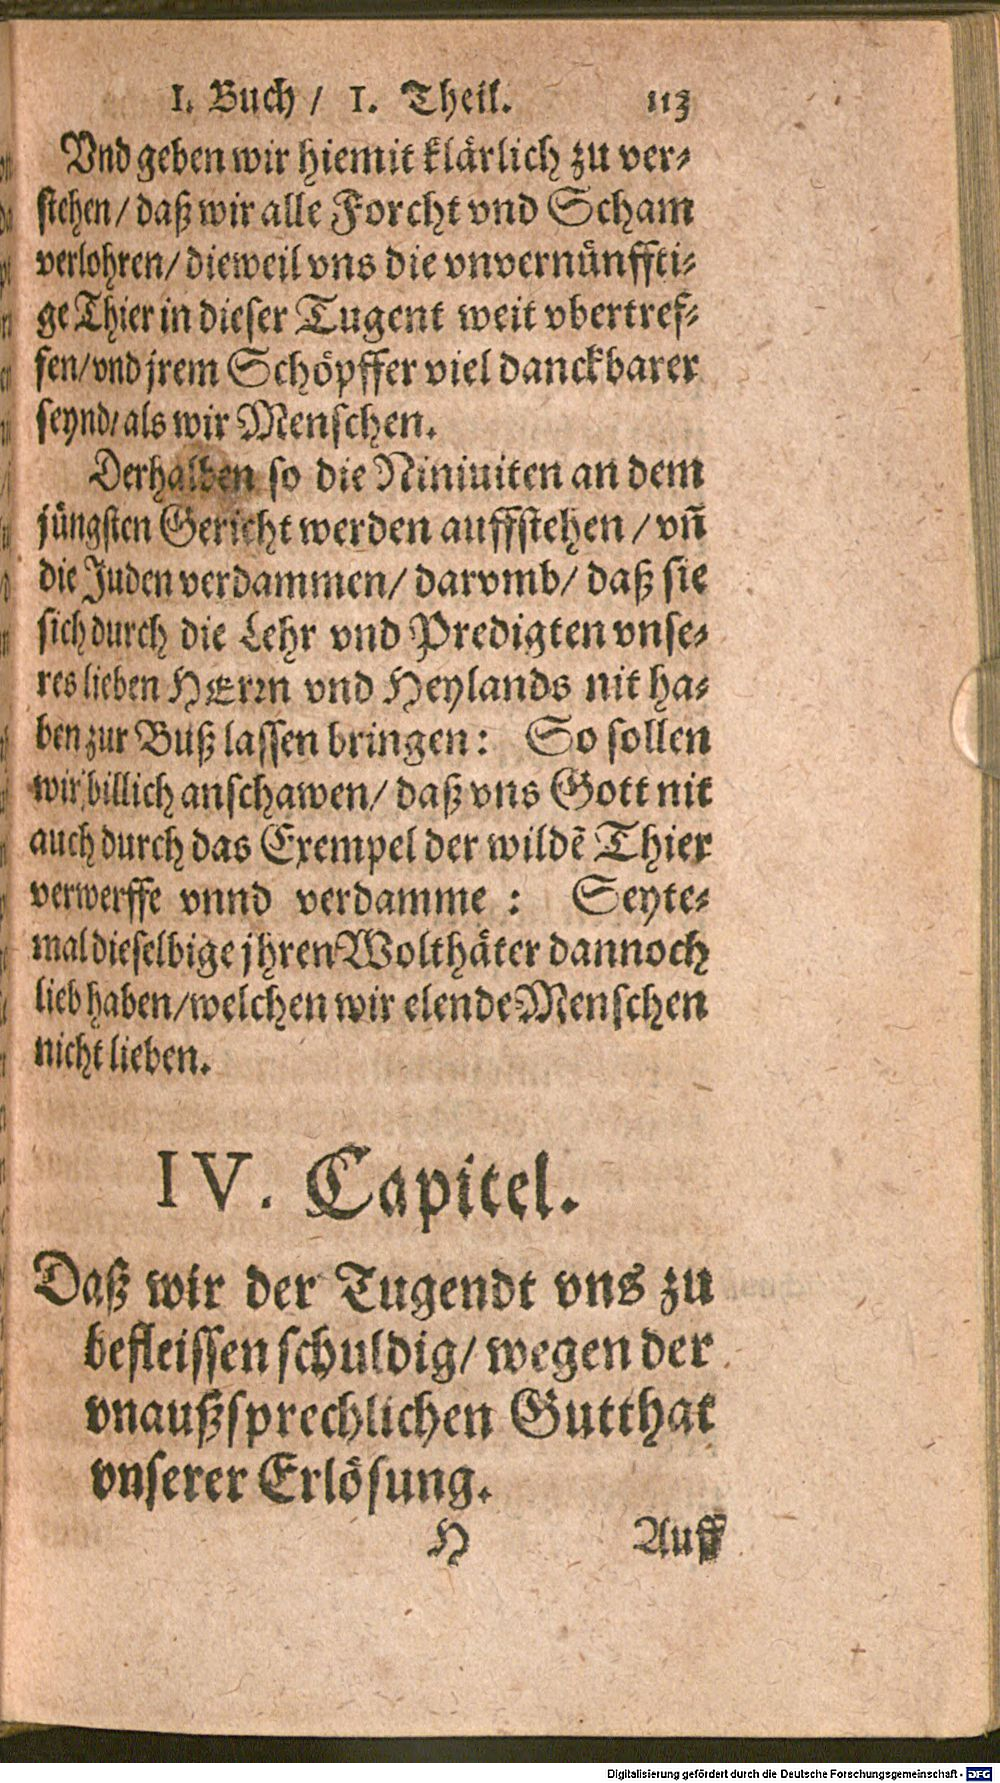 I. Buch / I. Theil. 113
Vnd geben wir hiemit klärlich zu ver-
stehen / daß wir alle Forcht vnd Scham
verlohren / dieweil vns die vnvernünffti-
ge Thier in dieser Tugent weit vbertref-
fen / vnd jrem Schöpffer viel danckbarer
seynd / als wir Menschen.
Derhalben so die Niniuiten an dem
jüngsten Gericht werden auffstehen / vñ
die Juden verdammen / darvmb / daß sie
sich durch die Lehr vnd Predigten vnse-
res lieben HErrn vnd Heylands nit ha-
ben zur Buß lassen bringen: So sollen
wir billich anschawen / daß vns Gott nit
auch durch das Exempel der wildẽ Thier
verwerffe vnnd verdamme : Seyte-
mal dieselbige jhren Wolthäter dannoch
lieb haben / welchen wir elende Menschen
nicht lieben.
IV. Capitel.
Daß wir der Tugendt vns zu
befleissen schuldig / wegen der
vnaußsprechlichen Gutthat
vnserer Erlösung.
H Auff
Digitalisierung gefördert durch die Deutsche Forschungsgemeinschaft - DFG